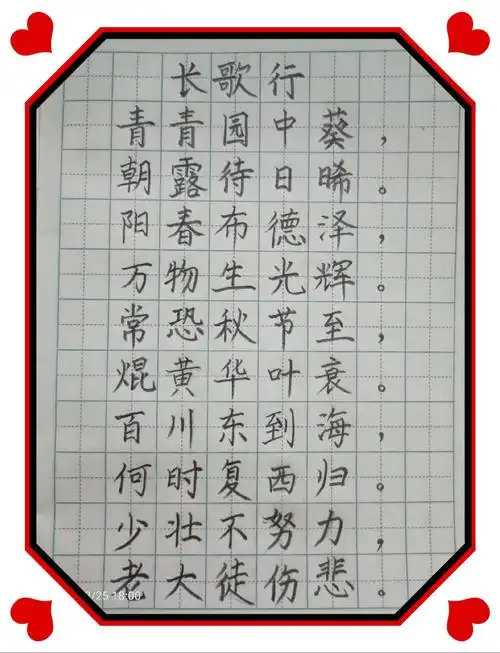 长歌行
青青园中葵，
朝露待日晞。
阳春布德泽，
万物生光辉。
常恐秋节至，
焜黄华叶衰。
百川东到海，
何时复西归。
少壮不努力，
老大徒伤悲。
/25 18:00